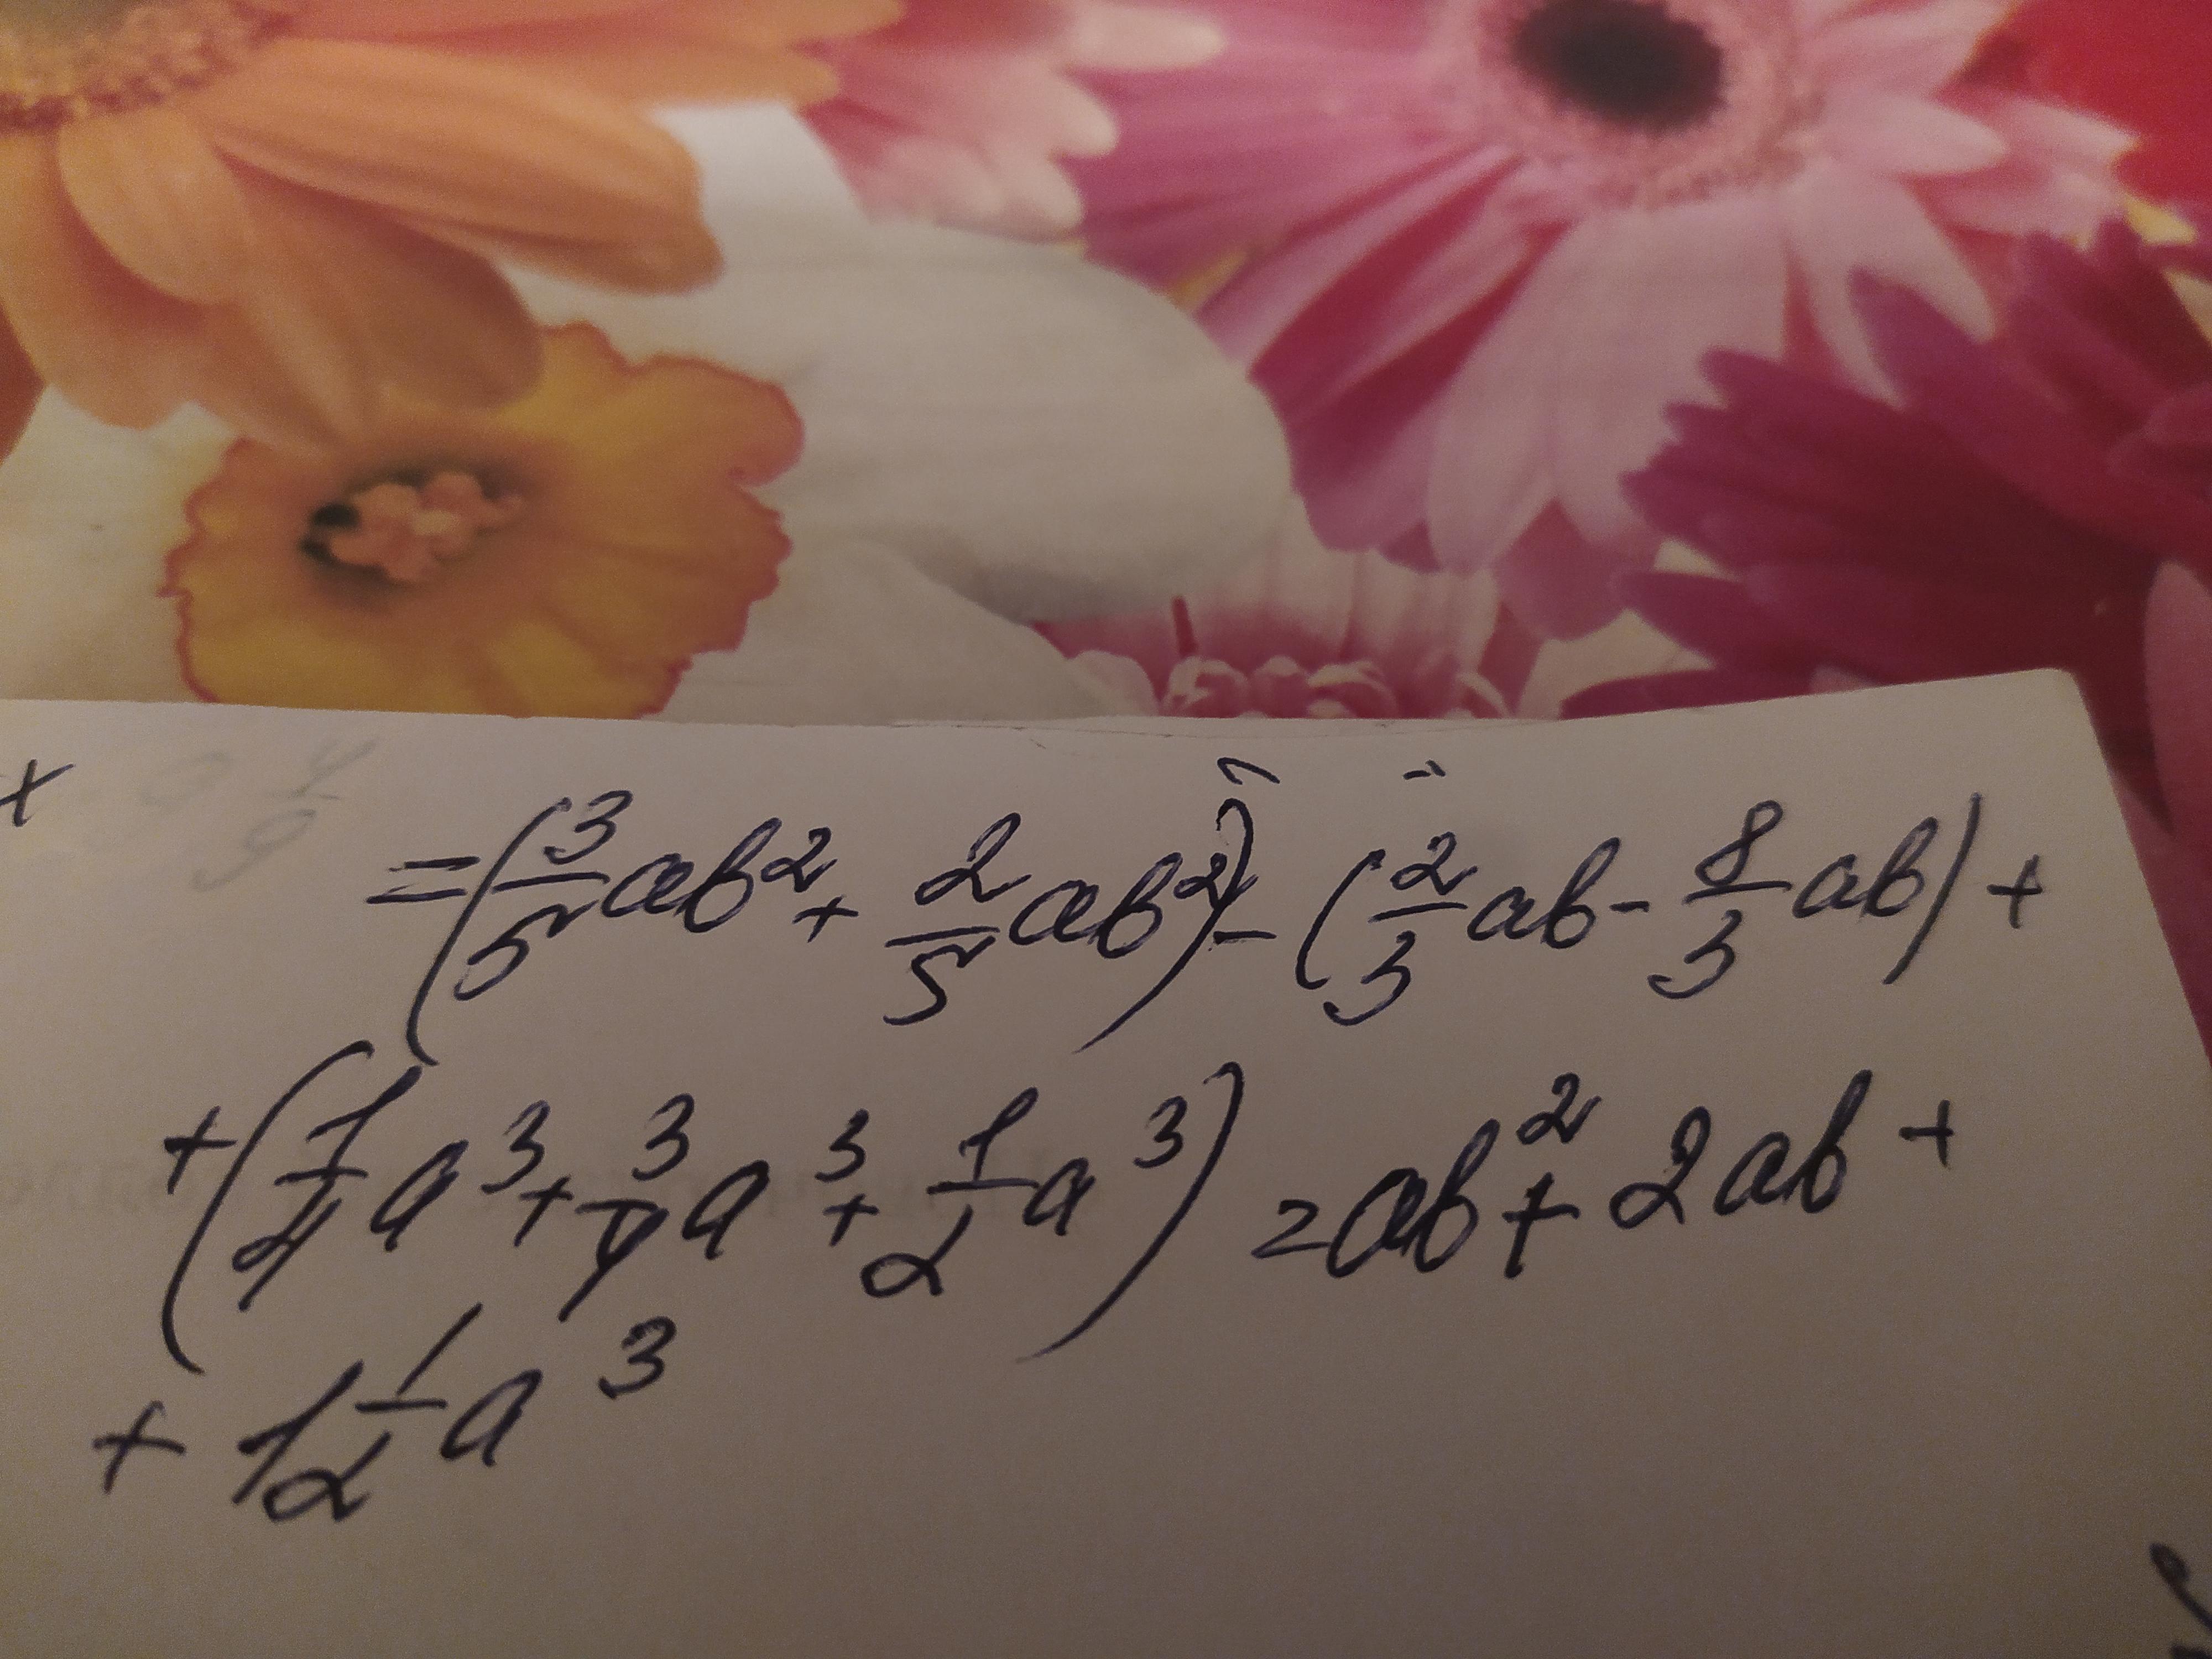 = (3/5 ab² + 2/5 ab²) - (2/3 ab - 8/3 ab) +
+ (1/4 a³ + 3/4 a³ + 1/2 a³) = ab² + 2ab +
+ 1 1/2 a³